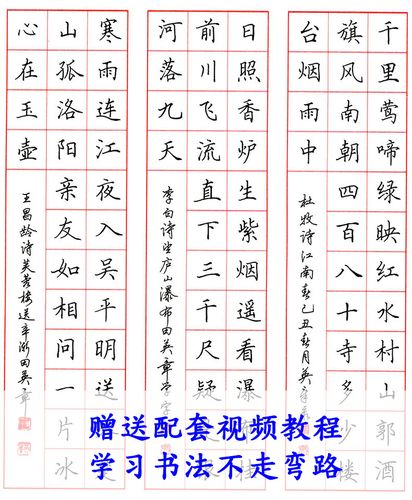 千里莺啼绿映红水村山郭酒
旗风南朝四百八十寺多少楼
台烟雨中
杜牧诗江南春己丑春月英章
日照香炉生紫烟遥看瀑
前川飞流直下三千尺疑
河落九天
李白诗望庐山瀑布田英章
寒雨连江夜入吴平明送
山孤洛阳亲友如相问一片冰
心在玉壶
王昌龄诗芙蓉楼送辛渐田英章
赠送配套视频教程
学习书法不走弯路